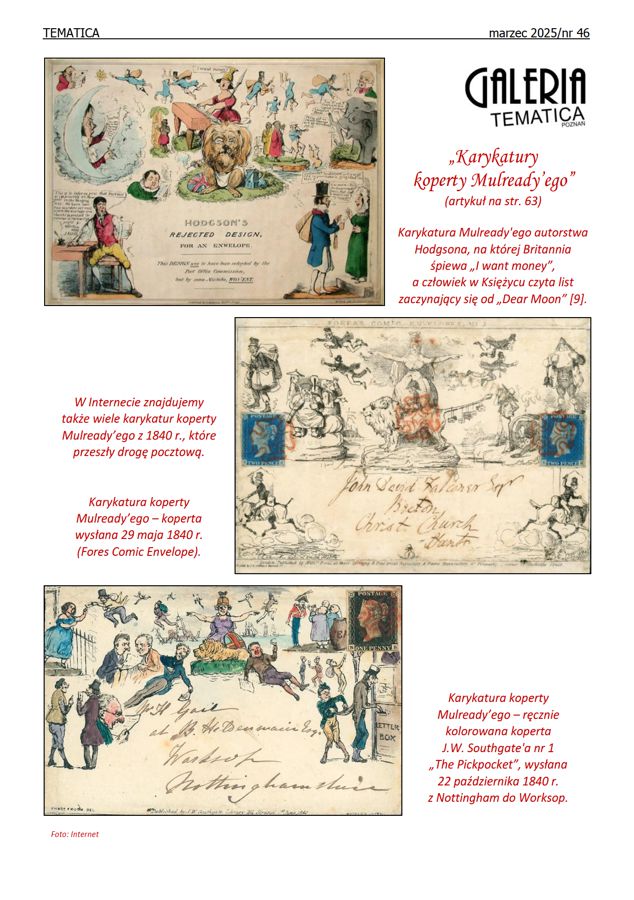 TEMATICA
marzec 2025/nr 46
GALERIA
TEMATICA
POZNAŃ
„Karykatury
koperty Mulready’ego”
(artykuł na str. 63)
Karykatura Mulready'ego autorstwa
Hodgsona, na której Britannia
śpiewa „I want money”,
a człowiek w Księżycu czyta list
zaczynający się od „Dear Moon” [9].
I want money
HODGSON'S
REJECTED DESIGN,
FOR AN ENVELOPE.
This DESIGN was to have been adopted by the
Post Office Commission,
but by some Mistake, WOS'ENT.
W Internecie znajdujemy
także wiele karykatur koperty
Mulready’ego z 1840 r., które
przeszły drogę pocztową.
Karykatura koperty
Mulready’ego – koperta
wysłana 29 maja 1840 r.
(Fores Comic Envelope).
FORES'S COMIC ENVELOPES. No. 1
POSTAGE
TWO PENCE
POSTAGE
TWO PENCE
John David
Christ Church
Hants
POSTAGE
ONE PENNY
LETTER
BOX
at B.
Worksop
Nottinghamshire
Karykatura koperty
Mulready’ego – ręcznie
kolorowana koperta
J.W. Southgate'a nr 1
„The Pickpocket”, wysłana
22 października 1840 r.
z Nottingham do Worksop.
Foto: Internet